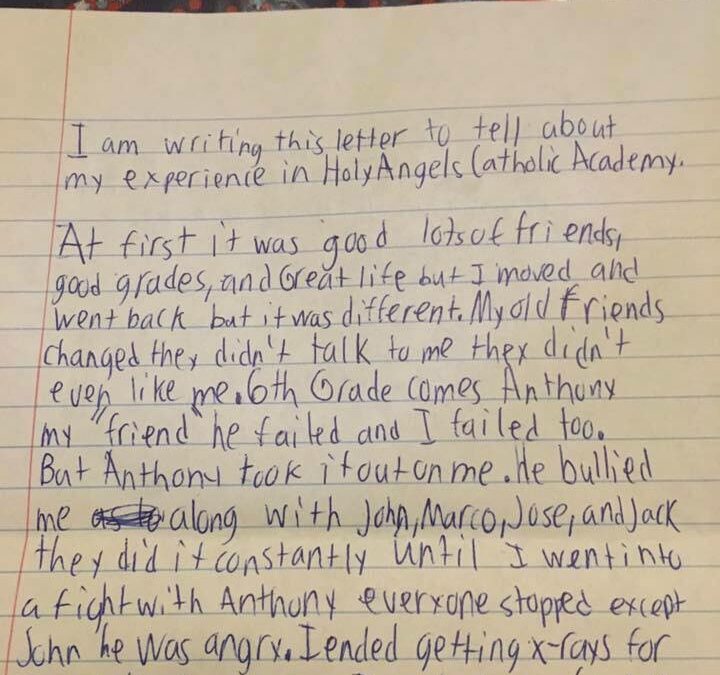 I am writing this letter to tell about
my experience in Holy Angels Catholic Academy.
At first it was good lots of friends,
good grades, and Great life but I moved and
went back but it was different. My old friends
changed they didn't talk to me they didn't
even like me. 6th Grade comes Anthony
my "friend" he failed and I failed too.
But Anthony took it out on me. He bullied
me along with John, Marco, Jose, and Jack
they did it constantly until I went into
a fight with Anthony everyone stopped except
John he was angry. I ended getting x-rays for